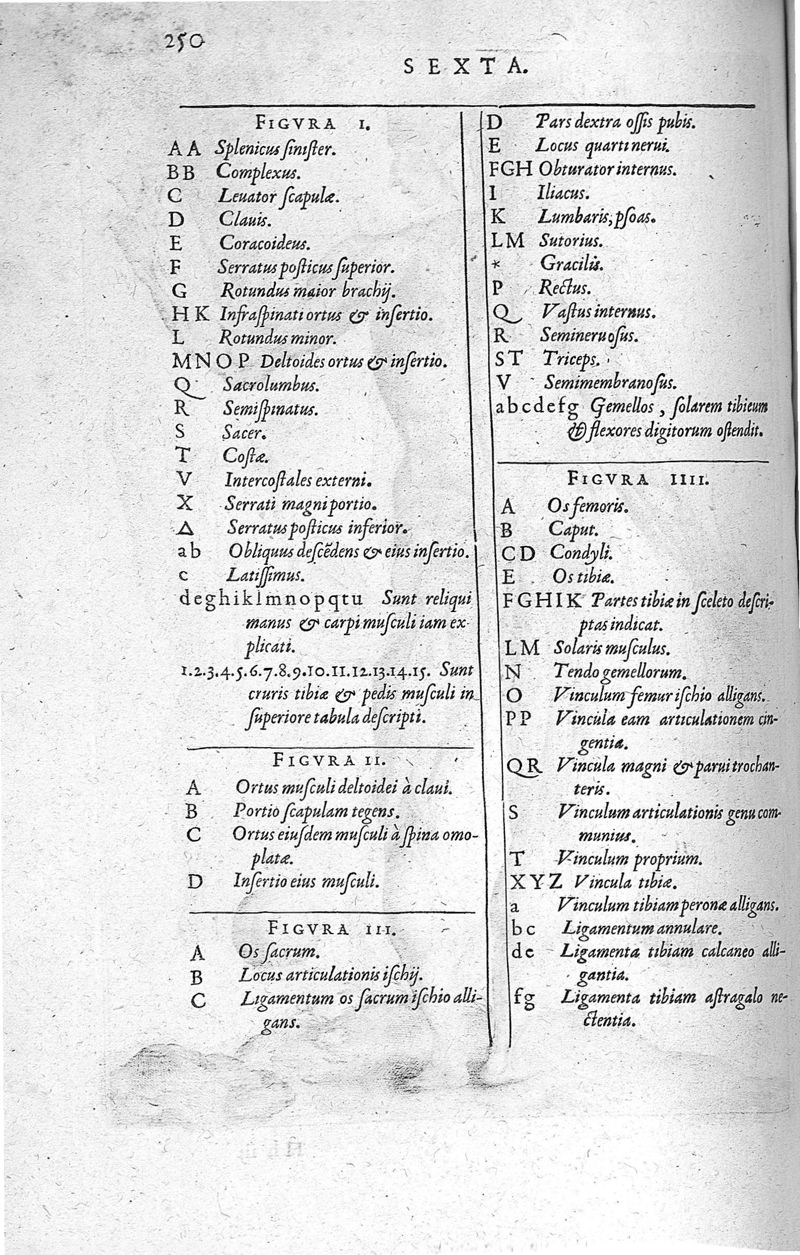 250
SEXTA.
FIGVRA I.
AA Splenicus ſiniſter.
BB Complexus.
C Leuator ſcapulæ.
D Clauis.
E Coracoideus.
F Serratus poſticus ſuperior.
G Rotundus maior brachij.
HK Infraſpinati ortus & inſertio.
L Rotundus minor.
MNOP Deltoides ortus & inſertio.
Q Sacrolumbus.
R Semiſpinatus.
S Sacer.
T Coſtæ.
V Intercoſtales externi.
X Serrati magni portio.
Δ Serratus poſticus inferior.
ab Obliquus deſcẽdens & eius inſertio.
c Latiſſimus.
deghiklmnopqtu Sunt reliqui
manus & carpi muſculi iam ex-
plicati.
1.2.3.4.5.6.7.8.9.10.11.12.13.14.15. Sunt
cruris tibiæ & pedis muſculi in
ſuperiore tabula deſcripti.
FIGVRA II.
A Ortus muſculi deltoidei à claui.
B Portio ſcapulam tegens.
C Ortus eiuſdem muſculi à ſpina omo-
platæ.
D Inſertio eius muſculi.
FIGVRA III.
A Os ſacrum.
B Locus articulationis iſchij.
C Ligamentum os ſacrum iſchio alli-
gans.
D Pars dextra oſſis pubis.
E Locus quarti nerui.
FGH Obturator internus.
I Iliacus.
K Lumbaris, pſoas.
LM Sutorius.
* Gracilis.
P Rectus.
Q Vaſtus internus.
R Semineruoſus.
ST Triceps.
V Semimembranoſus.
abcdefg Gemellos, ſolarem tibieum
& flexores digitorum oſtendit.
FIGVRA IIII.
A Os femoris.
B Caput.
CD Condyli.
E Os tibiæ.
FGHIK Partes tibiæ in ſceleto deſcri-
ptas indicat.
LM Solaris muſculus.
N Tendo gemellorum.
O Vinculum femur iſchio alligans.
PP Vincula eam articulationem cin-
gentia.
QR Vincula magni & parui trochan-
teris.
S Vinculum articulationis genu com-
munius.
T Vinculum proprium.
XYZ Vincula tibiæ.
a Vinculum tibiam peronæ alligans.
bc Ligamentum annulare.
de Ligamenta tibiam calcaneo alli-
gantia.
fg Ligamenta tibiam aſtragalo ne-
ctentia.